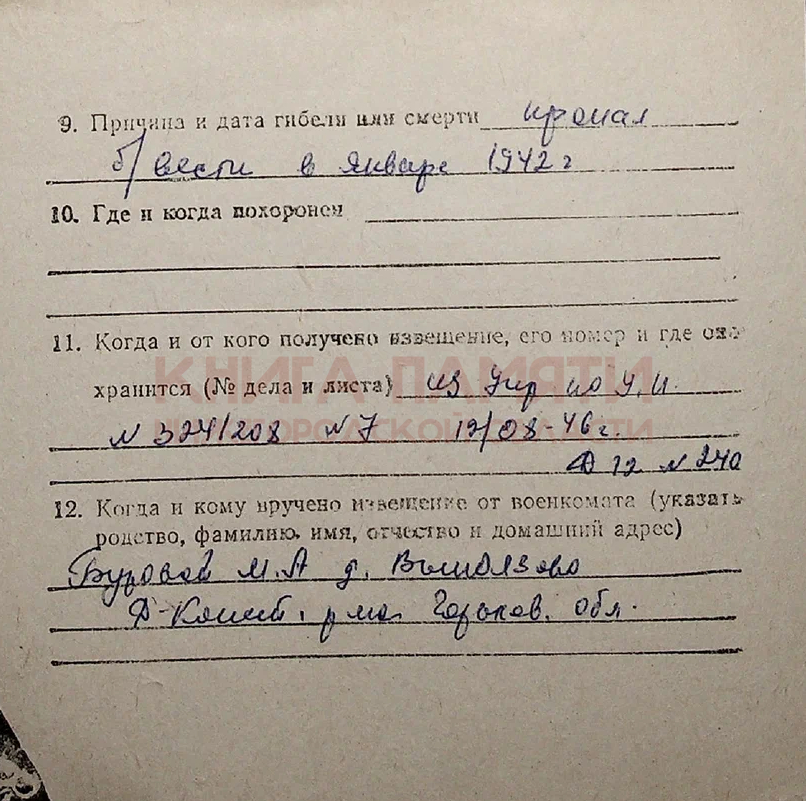 9. Причина и дата гибели или смерти пропал
б/ вести в январе 1942 г
10. Где и когда похоронен
11. Когда и от кого получено извещение, его номер и где оно
КНИГА ПАМЯТИ
хранится (№ дела и листа) из Упр по У.П.
НИЖЕГОРОДСКОЙ ОБЛАСТИ
N 324/208 N 7 12/08-46 г.
N 240
12. Когда и кому вручено извещение от военкомата (указать
родство, фамилию, имя, отчество и домашний адрес)
Буровой М. А д.
Д-Конст. р-на Горьков. обл.